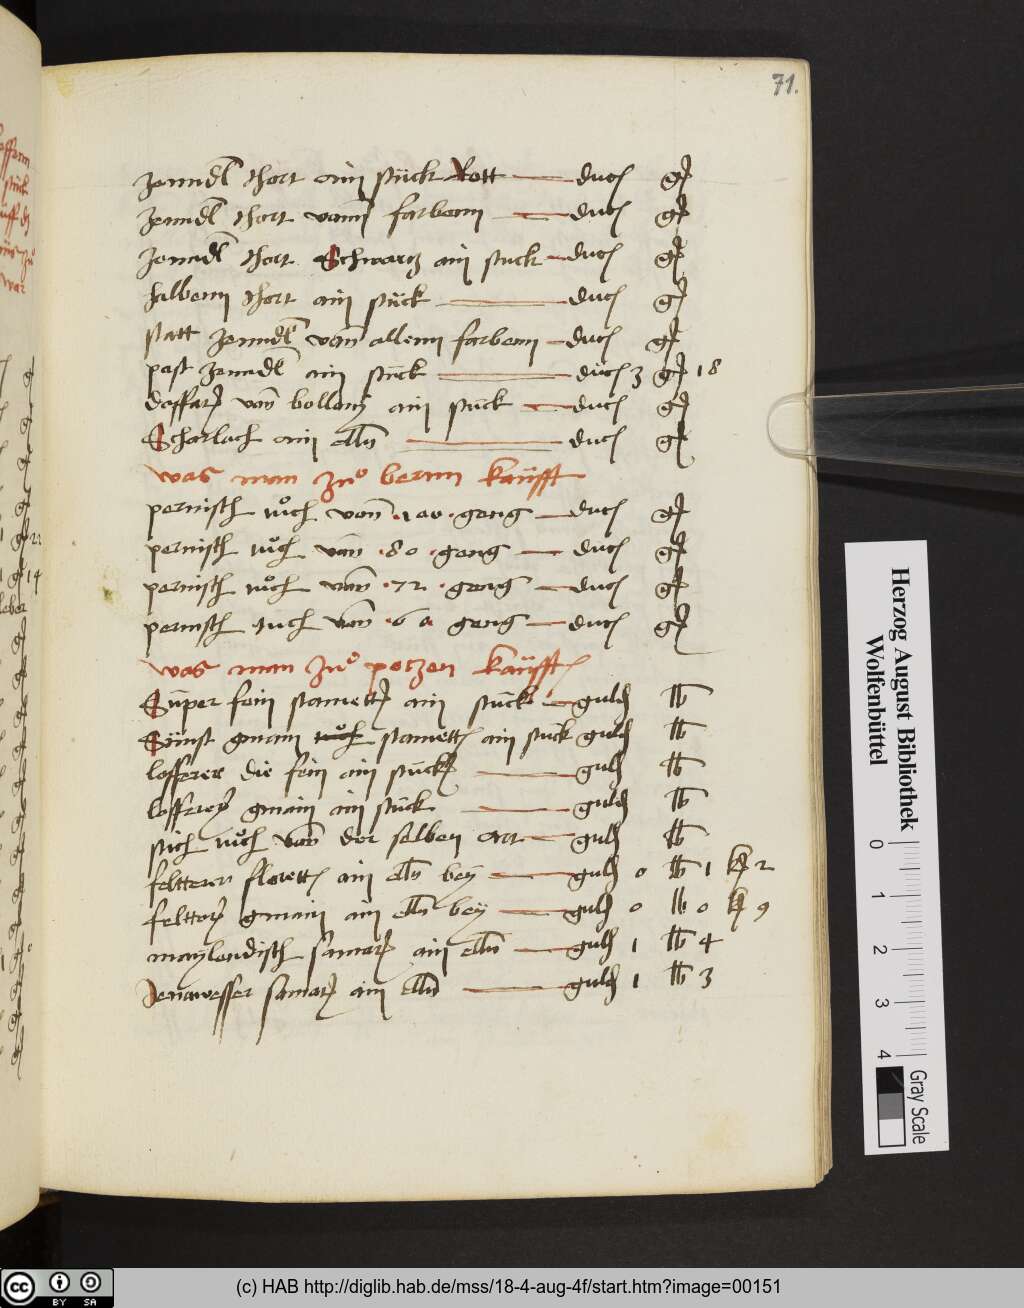 71.
zenndl thort ain stück Rott duc gr
zenndl thort vonn farbenn duc gr
zenndl thort Schwartz ain stuck duc gr
halbenn thort ain stück duc gr
statt zenndl von allenn farbenn duc gr
past zenndl ain stück duc 3 gr 18
daffatt von bolleny ain stuck duc gr
Scharlach ain elln duc gr
was man zuo bernn kaüfft
pernisch tuoch vonn 100 geng duc gr
pernisch tuoch von 80 geng duc gr
pernisch tuoch vonn 72 geng duc gr
pernisch tuch vonn 60 geng duc gr
was man zuo potzen kaüfft
Süper fein stamett ain stück guld lb
Sünst gmain stamett ain stück guld lb
lofferer die fein ain stück guld lb
loffrer gmain ain stück guld lb
stich tuoch von der selben art guld lb
feltterer florett ain elln bey guld 0 lb 1 kr 2
felttrer gmain ain elln bey guld 0 lb 0 kr 9
maylendisch samatt ain elln guld 1 lb 4
Jenawesser samatt ain elln guld 1 lb 3
22
14
Herzog August Bibliothek
Wolfenbüttel
0 1 2 3 4
Gray Scale
cc BY SA
(c) HAB http://diglib.hab.de/mss/18-4-aug-4f/start.htm?image=00151